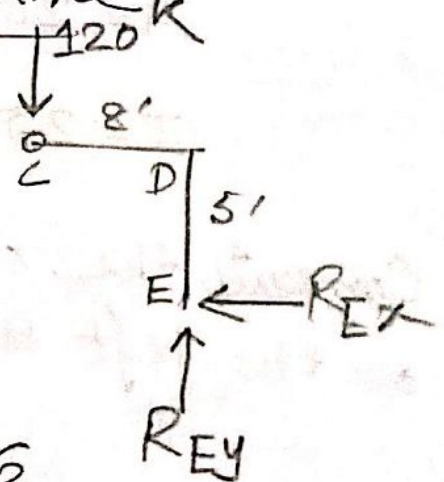 K
120
8'
C
D
5'
E
REx
REy